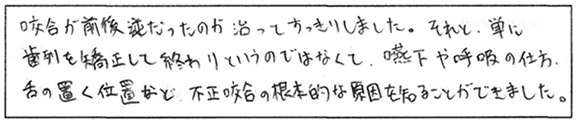 咬合が前後逆だったのが治ってすっきりしました。それと、単に
歯列を矯正して終わりというのではなくて、嚥下や呼吸の仕方、
舌の置く位置など、不正咬合の根本的な原因を知ることができました。